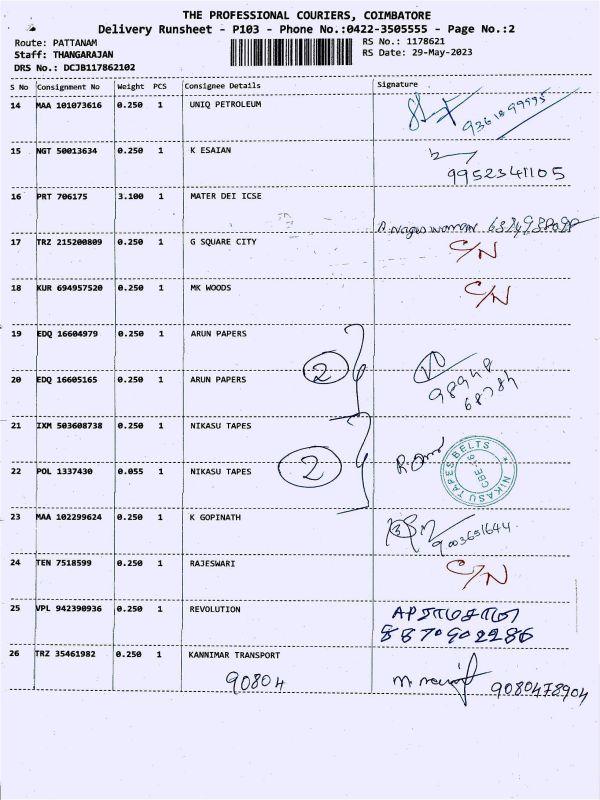 THE PROFESSIONAL COURIERS, COIMBATORE
Delivery Runsheet - P103 - Phone No.:0422-3505555 - Page No.:2
Route: PATTANAM
RS No.: 1178621
Staff: THANGARAJAN
RS Date: 29-May-2023
DRS No.: DCJB117862102
S No Consignment No Weight PCS Consignee Details Signature
14 MAA 101073616 0.250 1 UNIQ PETROLEUM
15 NGT 50013634 0.250 1 K ESAIAN
9952341105
16 PRT 706175 3.100 1 MATER DEI ICSE
17 TRZ 215200809 0.250 1 G SQUARE CITY C/N
18 KUR 694957520 0.250 1 MK WOODS C/N
19 EDQ 16604979 0.250 1 ARUN PAPERS
2
20 EDQ 16605165 0.250 1 ARUN PAPERS
98948
68784
21 IXM 503608738 0.250 1 NIKASU TAPES
2
22 POL 1337430 0.055 1 NIKASU TAPES
NIKASU TAPES BELTS
23 MAA 102299624 0.250 1 K GOPINATH
9003651644
24 TEN 7518599 0.250 1 RAJESWARI C/N
25 VPL 942390936 0.250 1 REVOLUTION
8870902286
26 TRZ 35461982 0.250 1 KANNIMAR TRANSPORT
90804
9080478904